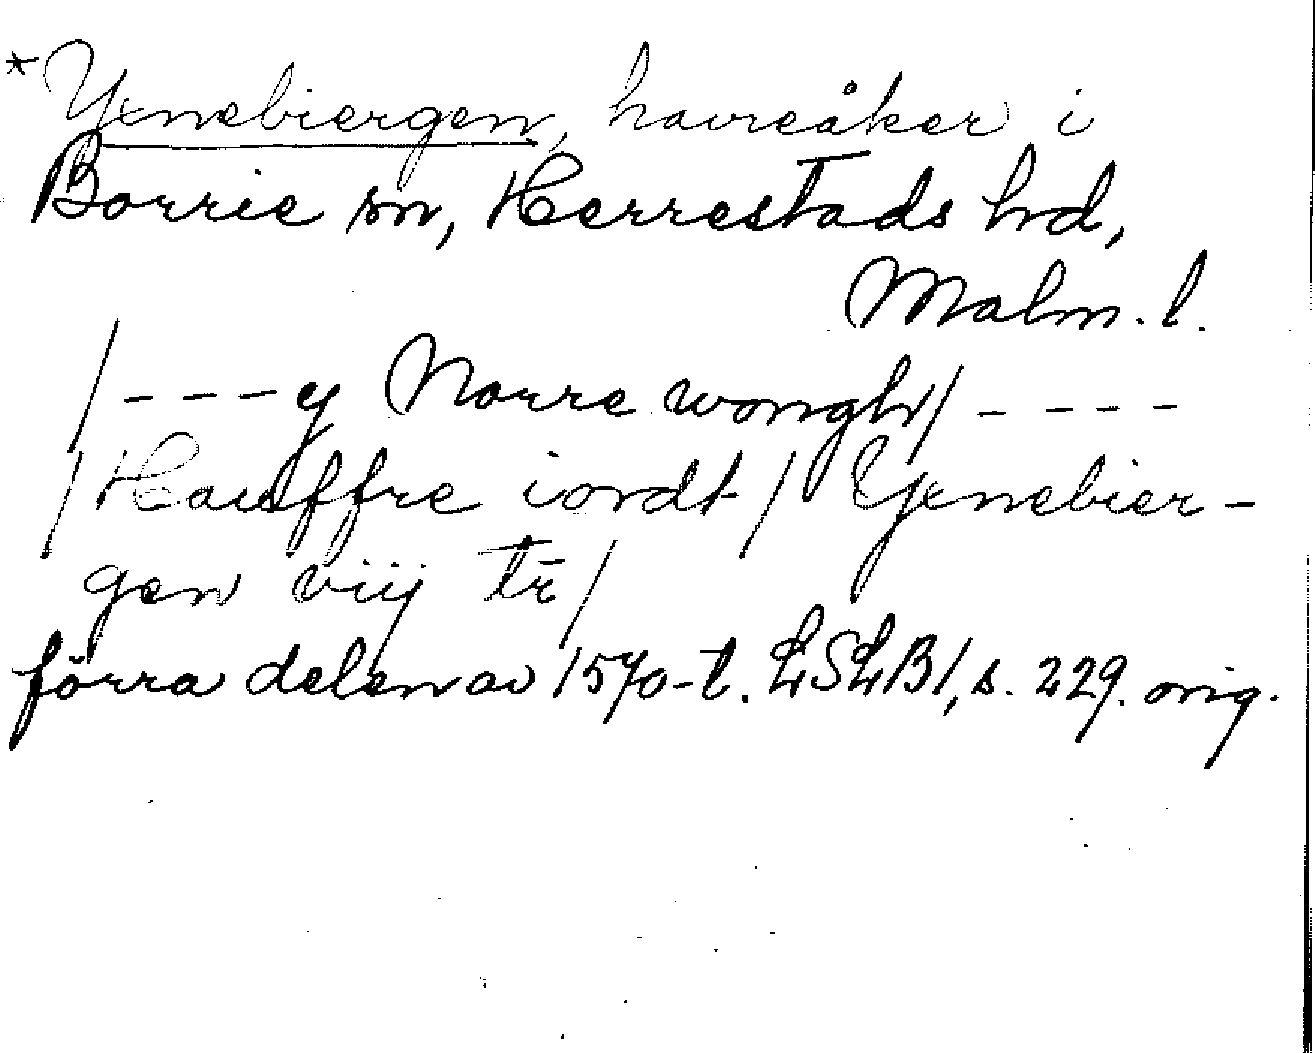 *Yxnebiergen, havreåker i
Borrie sn, Herrestads hd,
Malm. l.
/----y Norre wongh/----
/Hauffre iordt/ Yxnebier-
gen viij tr̄/
förra delen av 1570-t. LSLB1, s. 229. orig.